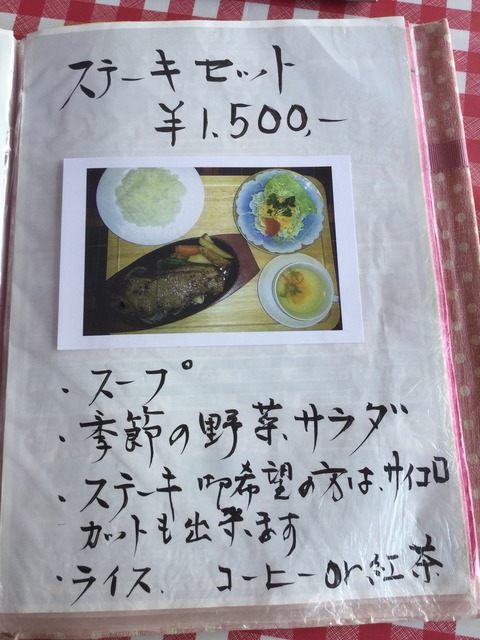 ステーキセット
￥1,500,-
・スープ
・季節の野菜、サラダ
・ステーキ 御希望の方は、サイコロ
カットも出来ます
・ライス、 コーヒーor紅茶